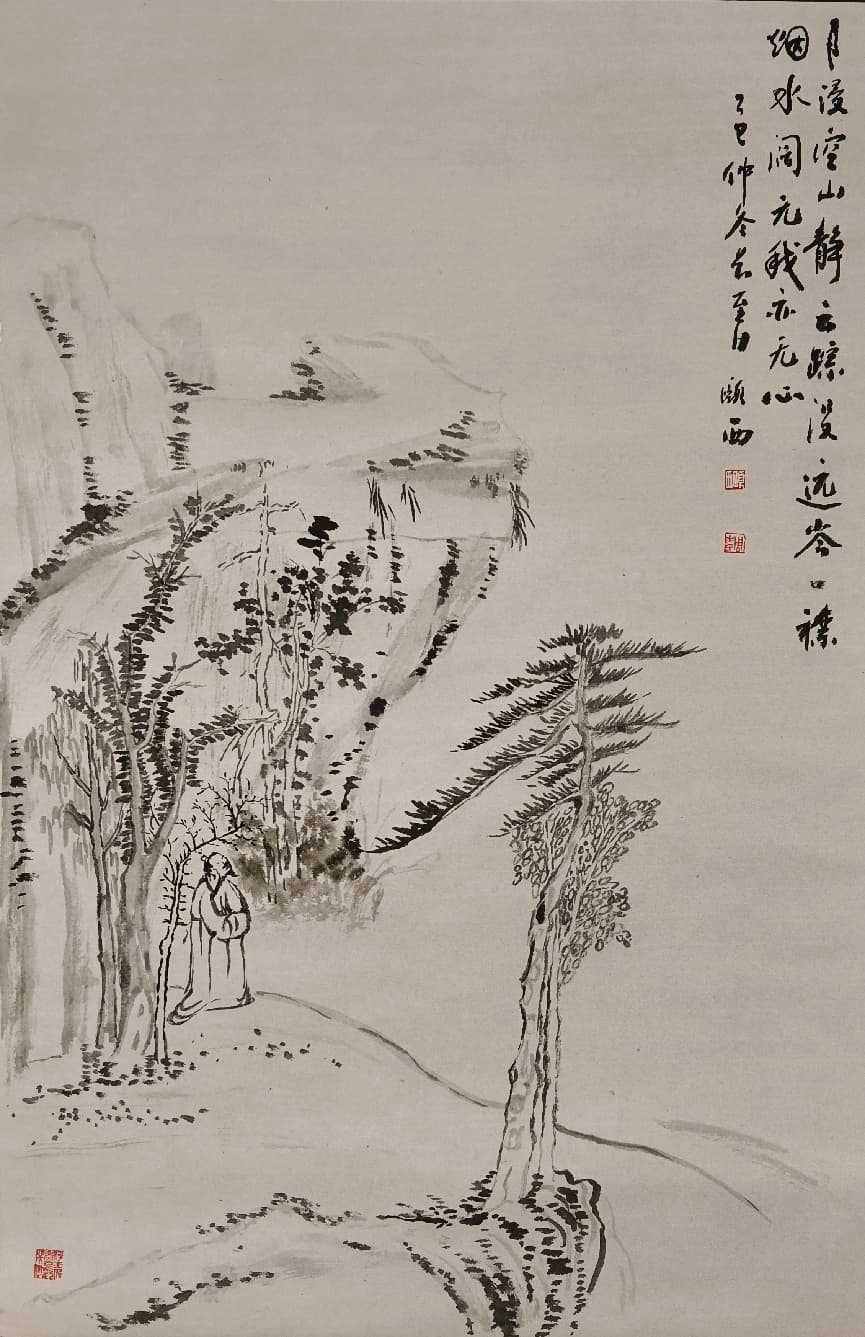 月浸空山静云踪没远岑口襟
烟水阔无我亦无心
乙巳仲冬冬至日 颐西